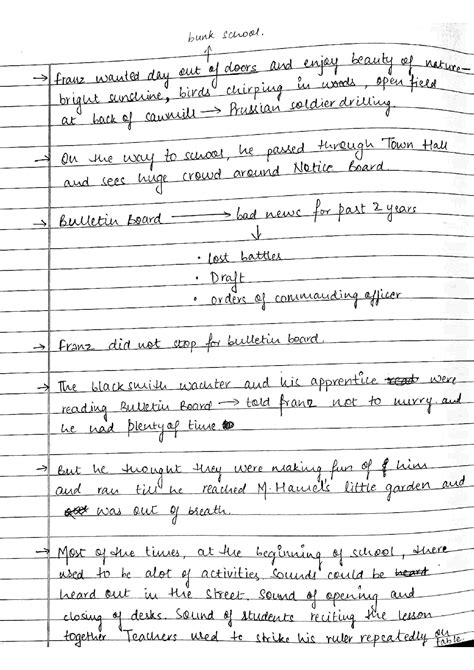 bunk school.
↑
→ Franz wanted day out of doors and enjoy beauty of nature-
bright sunshine, birds chirping in woods, open field
at back of sawmill → Prussian soldier drilling.
→ On the way to school, he passed through Town Hall
and sees huge crowd around Notice Board.
→ Bulletin Board → bad news for past 2 years
↓
• lost battles
• Draft
• orders of commanding officer
→ Franz did not stop for bulletin board.
→ The blacksmith wachter and his apprentice were
reading Bulletin Board → told Franz not to hurry and
he had plenty of time
→ But he thought they were making fun of him
and ran till he reached M. Hamel's little garden and
was out of breath.
→ Most of the times, at the beginning of school, there
used to be alot of activities. Sounds could be heard
heard out in the street. Sound of opening and
closing of desks. Sound of students reciting the lesson
together. Teachers used to strike his ruler repeatedly on
table.